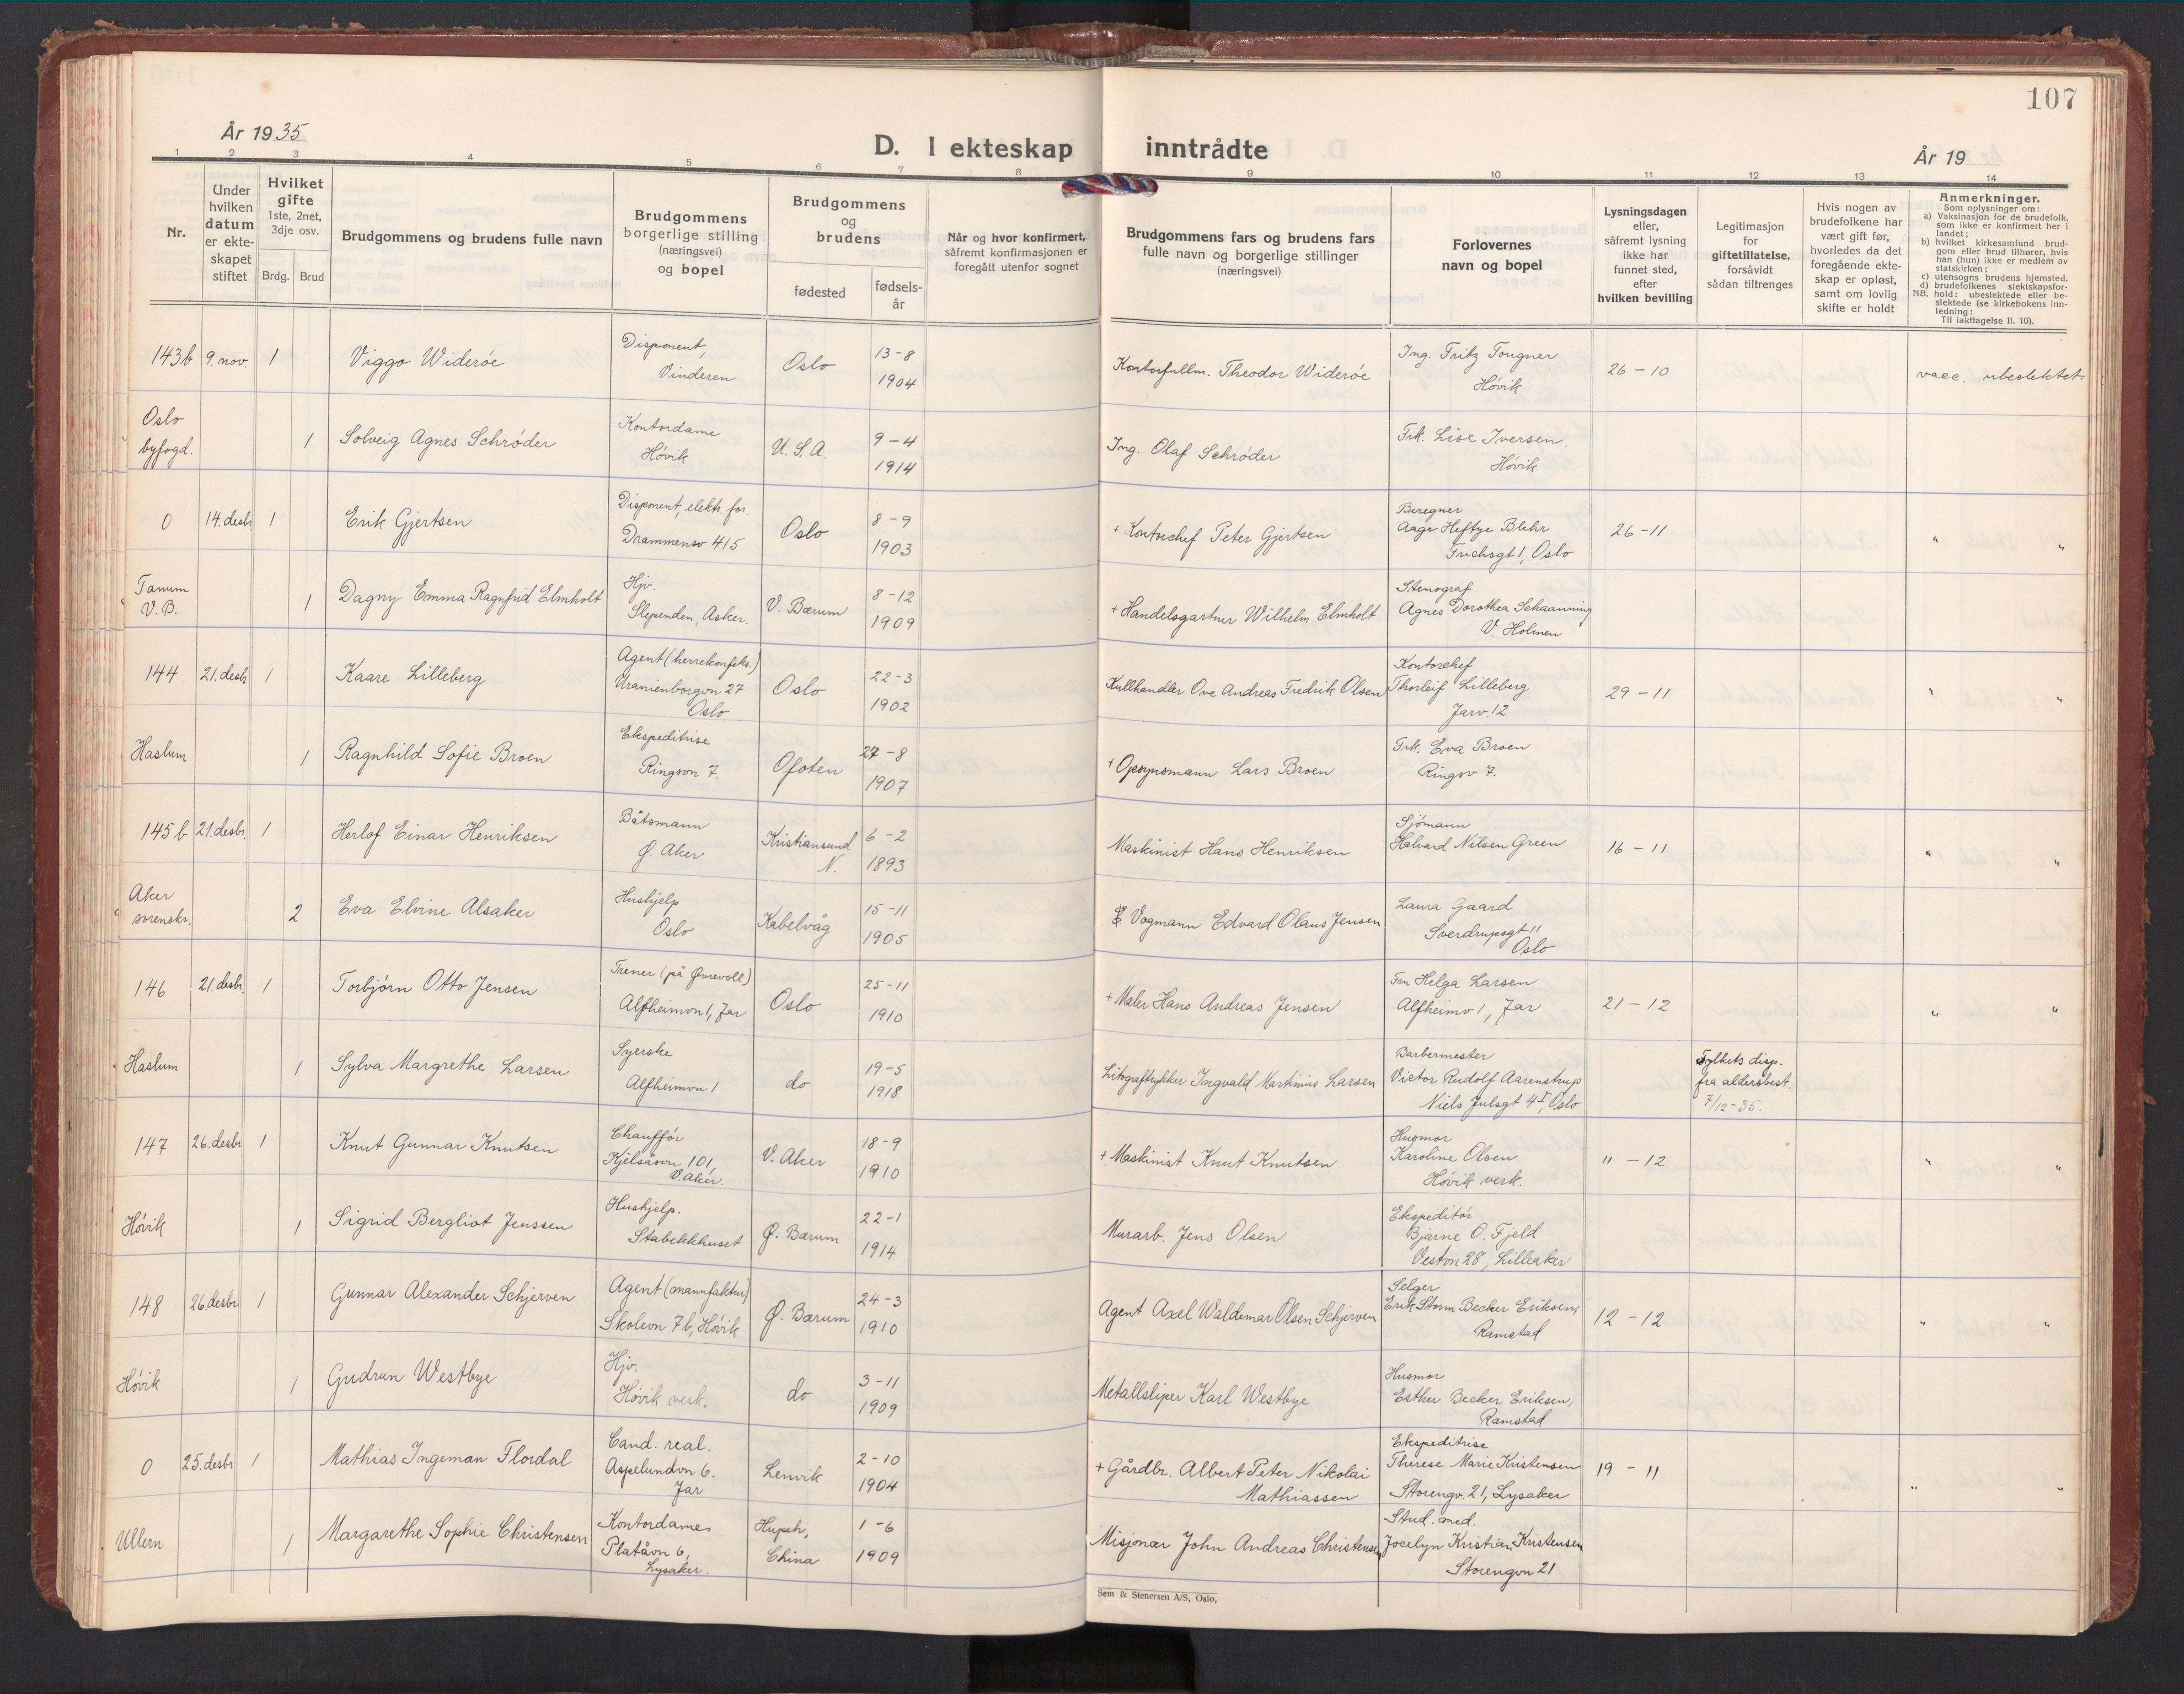 107
År 1935
D. I ekteskap inntrådte
År 19
1 2 3 4 5 6 7 8 9 10 11 12 13 14
Nr.
Under hvilken datum er ekte- skapet stiftet
Hvilket gifte 1ste, 2net, 3dje osv.
Brdg. Brud
Brudgommens og brudens fulle navn
Brudgommens borgerlige stilling (næringsvei) og bopel
Brudgommens og brudens
fødested
fødsels- år
Når og hvor konfirmert, såfremt konfirmasjonen er foregått utenfor sognet
Brudgommens fars og brudens fars fulle navn og borgerlige stillinger (næringsvei)
Forlovernes navn og bopel
Lysningsdagen eller, såfremt lysning ikke har funnet sted, efter hvilken bevilling
Legitimasjon for giftetillatelse, forsåvidt sådan tiltrenges
Hvis nogen av brudefolkene har vært gift før, hvorledes da det foregående ekte- skap er opløst, samt om lovlig skifte er holdt
Anmerkninger.
Som oplysninger om:
a) Vaksinasjon for de brudefolk, som ikke er konfirmert her i landet;
b) hvilket kirkesamfund brud- gom eller brud tilhører, hvis han (hun) ikke er medlem av statskirken;
c) utensogns brudens hjemsted.
d) brudefolkenes slektskapsfor- hold: ubeslektede eller be- slektede (se kirkebokens inn- ledning:
NB. Til iakttagelse II. 10).
143b 9. nov. 1 Viggo Widerøe Disponent, Vinderen Oslo 13-8 1904 Kontorfullm. Theodor Widerøe Ing. Fritz Tougner Høvik 26-10 vacc. ubeslektet.
Oslo byfogd. 1 Solveig Agnes Schrøder Kontordame Høvik U.S.A. 9-4 1914 Ing. Olaf Schrøder Frk. Lise Iversen. Høvik
0 14. desbr 1 Erik Gjertsen Disponent, elektr. for. Drammensv 415 Oslo 8-9 1903 + Kontorchef Peter Gjertsen Beregner Aage Heftye Blehr Frichsgt 1, Oslo 26-11 " "
Tanum V. B. 1 Dagny Emma Ragnfrid Elmholt Hjv. Slependen, Asker. V. Bærum 8-12 1909 + Handelsgartner Wilhelm Elmholt Stenograf Agnes Dorothea Schaanning V. Holmen
144 21. desbr 1 Kaare Lilleberg Agent (herrekonfeks.) Uranienborgvn 27 Oslo Oslo 22-3 1902 Kullhandler Ove Andreas Fredrik Olsen Kontorchef Thorleif Lilleberg Jarv. 12 29-11 " "
Haslum 1 Ragnhild Sofie Broen Ekspeditrise Ringsvn 7. Ofoten 27-8 1907 + Opsynsmann Lars Broen Frk. Eva Broen Ringsv 7.
145b 21. desbr. 1 Herlof Einar Henriksen Båtsmann Ø. Aker Kristiansund N. 6-2 1893 Maskinist Hans Henriksen Sjømann Halvard Nilsen Green 16-11 " "
Aker sorenskr. 2 Eva Elvine Alsaker Hushjelp Oslo Kabelvåg 15-11 1905 Vogmann Edvard Olaus Jensen Laura Gaard Sverdrupsgt 11 Oslo
146 21. desbr. 1 Torbjørn Otto Jensen Trener (på Øvrevoll) Alfheimvn 1, Jar Oslo 25-11 1910 + Maler Hans Andreas Jensen Fru Helga Larsen Alfheimv 1, Jar 21-12 " "
Haslum 1 Sylva Margrethe Larsen Syerske Alfheimvn 1 do 19-5 1918 Litograftrykker Ingvald Martinius Larsen Barbermester Victor Rudolf Aarenstrup Niels Julsgt 4I, Oslo Fylkets disp. fra aldersbest. 7/12-35.
147 26. desbr 1 Knut Gunnar Knutsen Chauffør Kjelsåsvn 101, V. Aker. V. Aker 18-9 1910 + Maskinist Knut Knutsen Husmor Karoline Olsen Høvik verk. 11-12 " "
Høvik 1 Sigrid Bergliot Jenssen Hushjelp. Stabekkhuset Ø. Bærum 22-1 1914 Murarb. Jens Olsen Ekspeditør Bjarne O. Fjeld Vestvn 28, Lilleaker
148 26. desbr 1 Gunnar Alexander Schjerven Agent (manufaktur) Skolevn 7b, Høvik Ø. Bærum 24-3 1910 Agent Axel Waldemar Olsen Schjerven Selger Erik Storm Becker Eriksen, Ramstad 12-12 " "
Høvik 1 Gudrun Westbye Hjv. Høvik verk. do 3-11 1909 Metallsliper Karl Westbye Husmor Esther Becker Eriksen, Ramstad
0 25. desbr 1 Mathias Ingeman Flordal Cand. real. Aspelundvn 6. Jar Lenvik 2-10 1904 + Gårdbr. Albert Peter Nikolai Mathiassen Ekspeditrise Therese Marie Kristensen Storengv. 21, Lysaker 19-11 " "
Ullern 1 Margarethe Sophie Christensen Kontordame Platåvn 6, Lysaker. Hupeh, China 1-6 1909 Misjonær John Andreas Christensen Stud. med. Jocelyn Kristian Kristensen Storengvn 21
Sem & Stenersen A/S, Oslo,